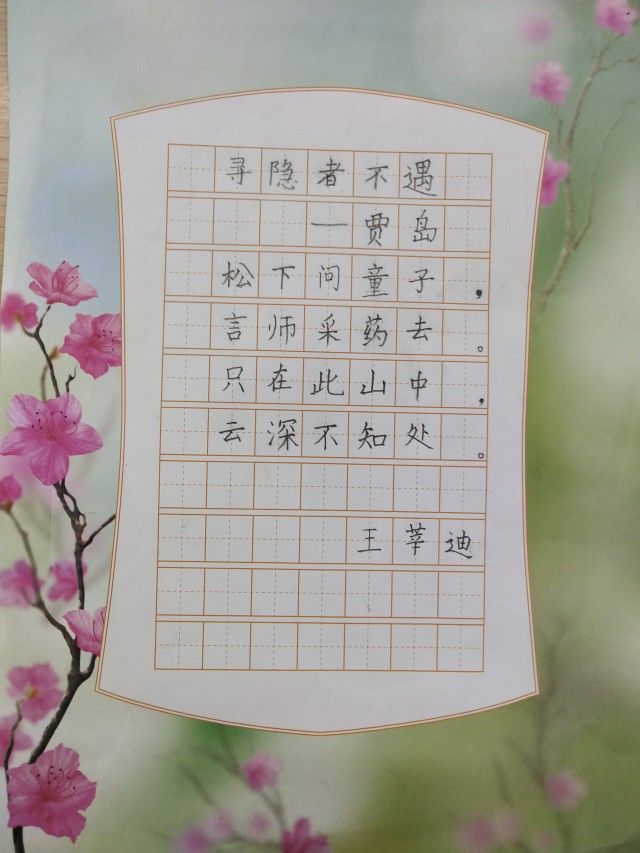 寻隐者不遇
—贾岛
松下问童子，
言师采药去。
只在此山中，
云深不知处。
王莘迪